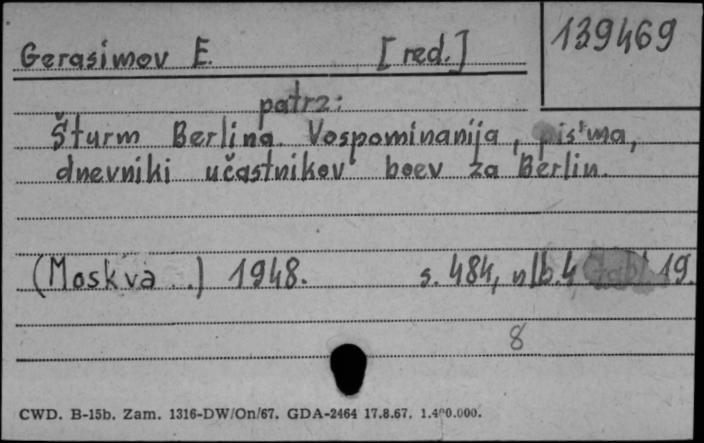 139469
Gerasimov E. [red.]
patrz:
Šturm Berlina. Vospominanija, pis'ma,
dnevniki učastnikov boev za Berlin.
(Moskva ..) 1948. s. 484, nlb. 4 tabl. 19.
8
CWD. B-15b. Zam. 1316-DW/On/67. GDA-2464 17.8.67. 1.400.000.